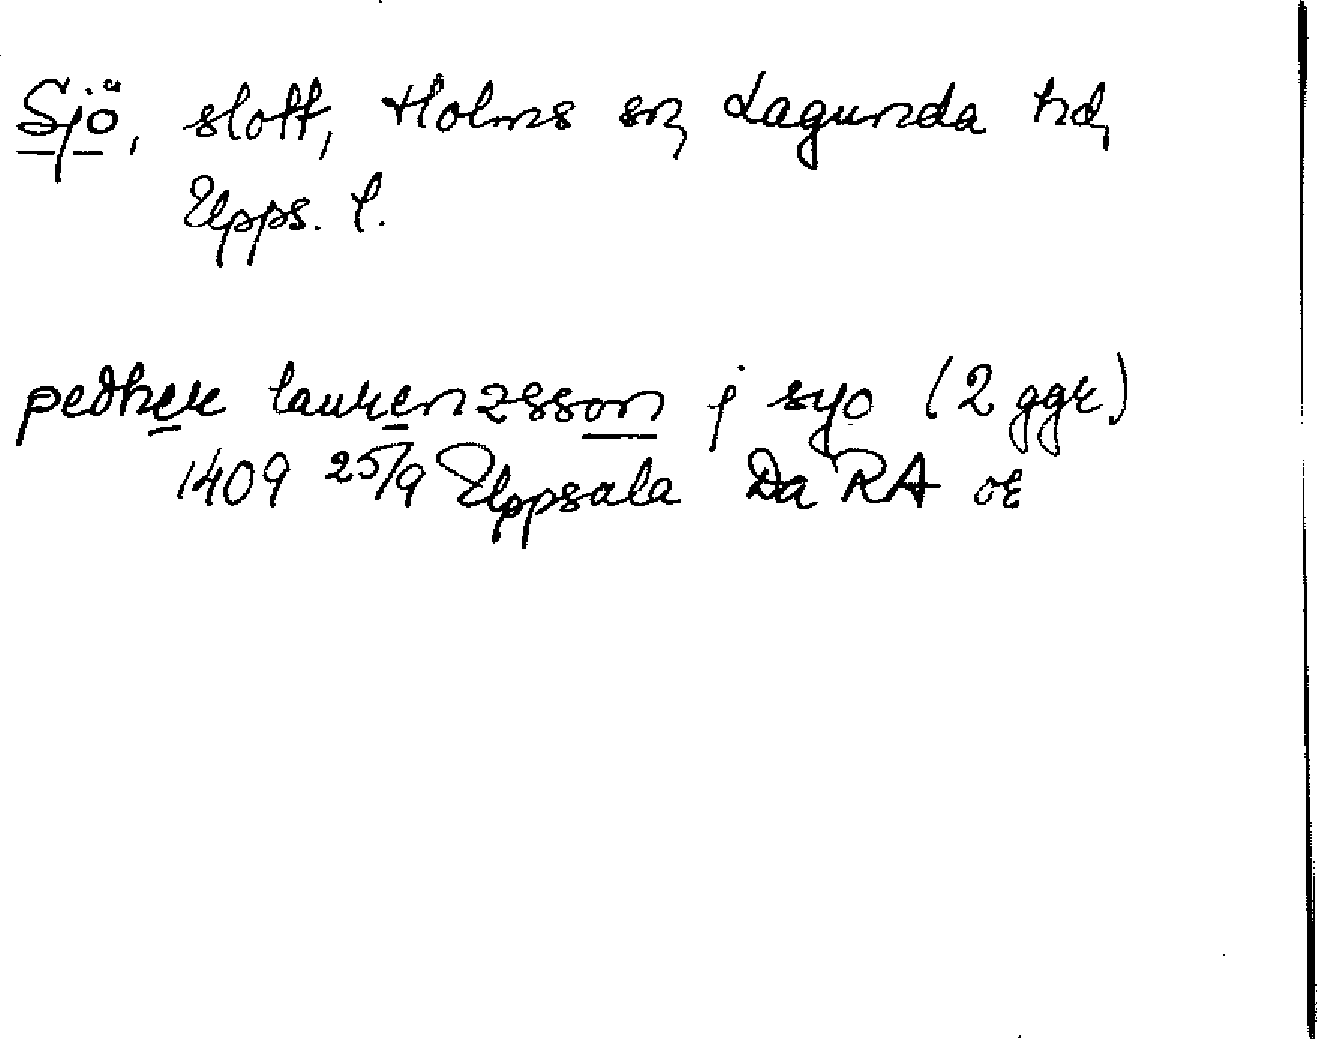 Sjö, slott, Holms sn, Lagunda hd,
Upps. l.
pedher laurenzsson j syo (2 ggr)
1409 25/9 Uppsala Da RA or